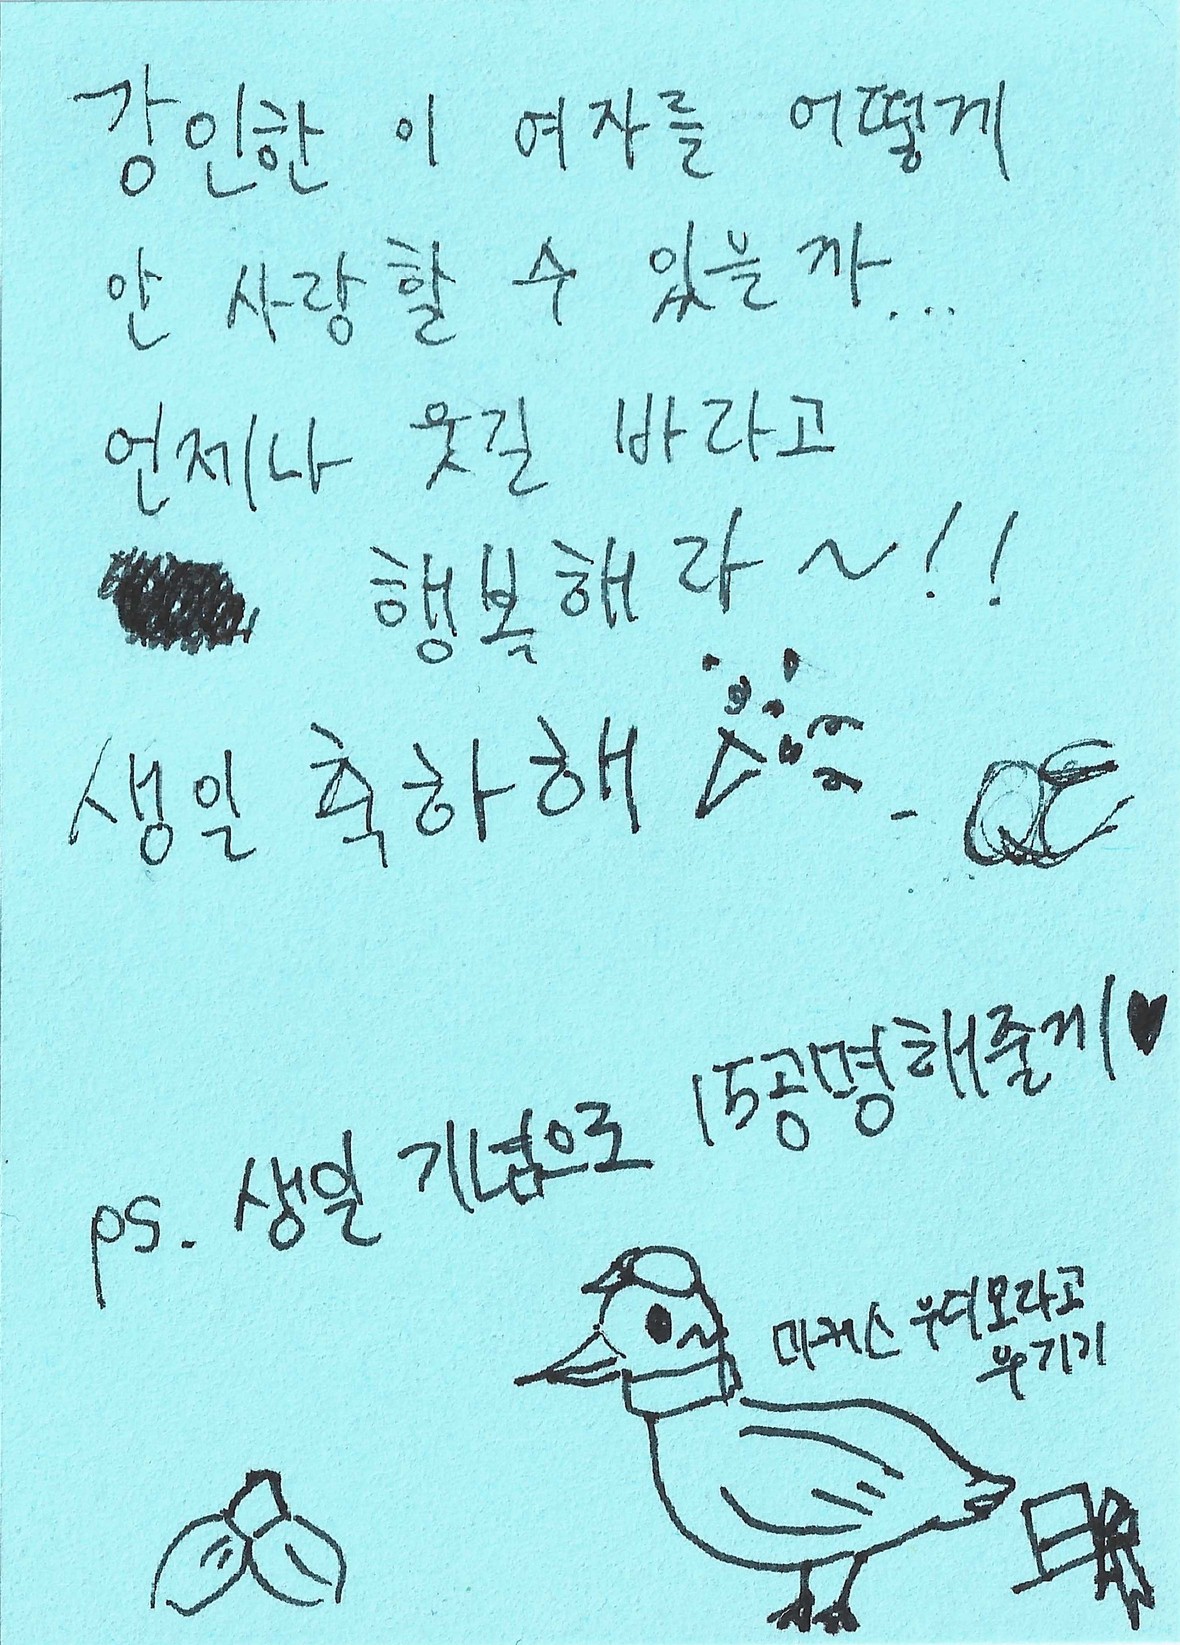 강인한 이 여자를 어떻게
안 사랑할 수 있을까...
언제나 웃길 바라고
행복해라~!!
생일 축하해
ps. 생일 기념으로 15공명해줄게♥
마커스 우더모라고
우기기